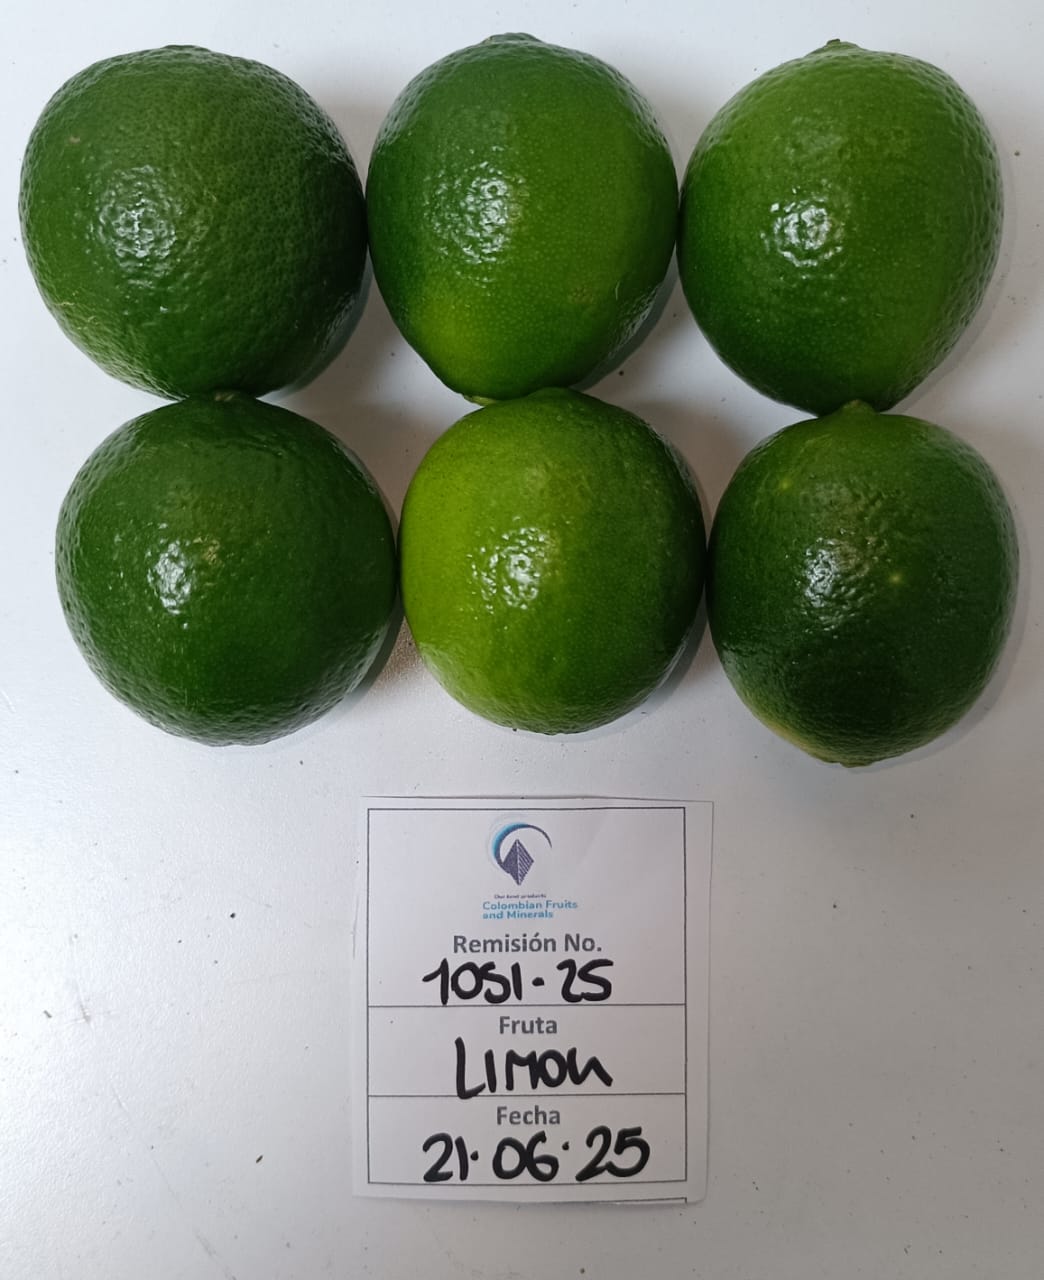 Our best products
Colombian Fruits
and Minerals
Remisión No.
1051-25
Fruta
LIMON
Fecha
21·06·25